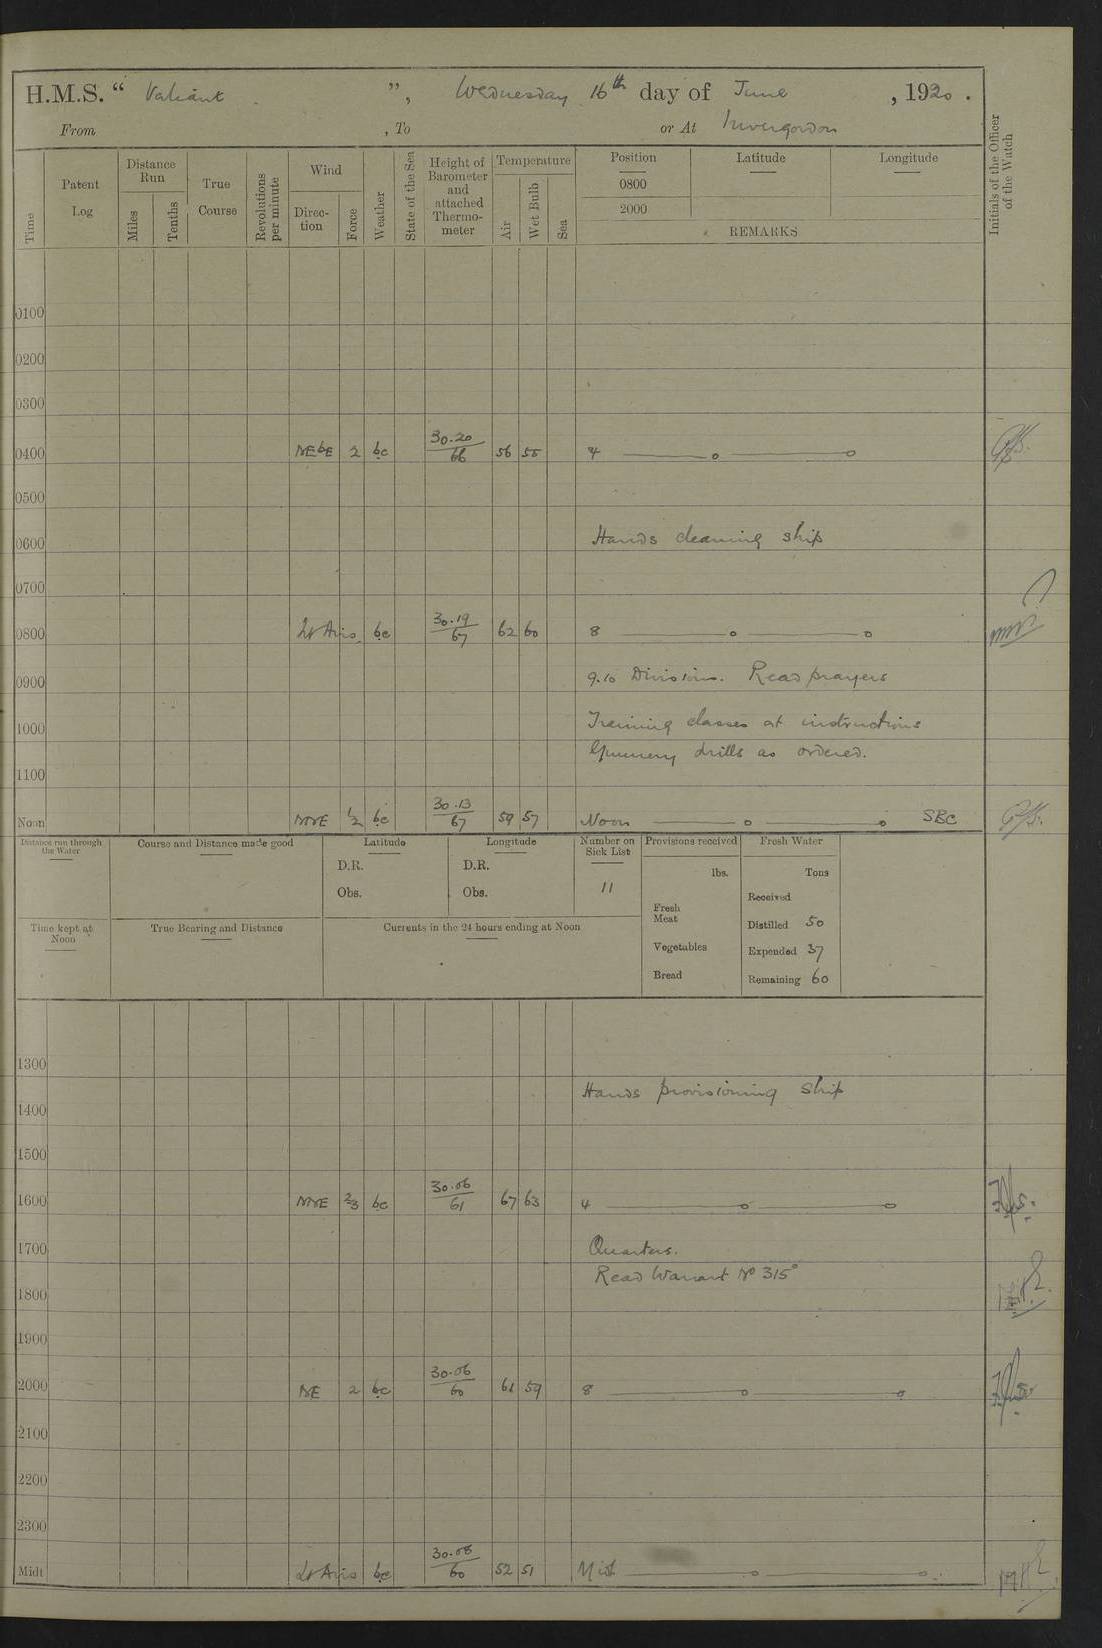 H.M.S. “ Valiant ”, Wednesday 16th day of June, 1920.
From , To or At Invergordon
Time
Patent Log
Distance Run
Miles
Tenths
True Course
Revolutions per minute
Wind
Direc-tion
Force
Weather
State of the Sea
Height of Barometer and attached Thermo-meter
Temperature
Air
Wet Bulb
Sea
Position Latitude Longitude
0800
2000
REMARKS
Initials of the Officer of the Watch
0100
0200
0300
0400 NEbE 2 bc 30.20/66 56 55 4
0500
0600 Hands cleaning ship
0700
0800 Lt Airs bc 30.19/67 62 60 8
0900 9.10 Divisions. Read prayers
1000 Training classes at instructions
Gunnery drills as ordered.
1100
Noon NNE 1/2 bc 30.13/67 59 57 Noon SBC
Distance run through the Water
Course and Distance made good
Latitude
D.R.
Obs.
Longitude
D.R.
Obs.
Number on Sick List
11
Provisions received
lbs.
Fresh Meat
Vegetables
Bread
Fresh Water
Tons
Received
Distilled 50
Expended 37
Remaining 60
Time kept at Noon
True Bearing and Distance
Currents in the 24 hours ending at Noon
1300
Hands provisioning ship
1400
1500
1600 NNE 2/3 bc 30.06/61 67 63 4
1700 Quarters.
Read Warrant No 315
1800
1900
2000 NE 2 bc 30.06/60 61 59 8
2100
2200
2300
Midt Lt Airs bc 30.08/60 52 51 Mid